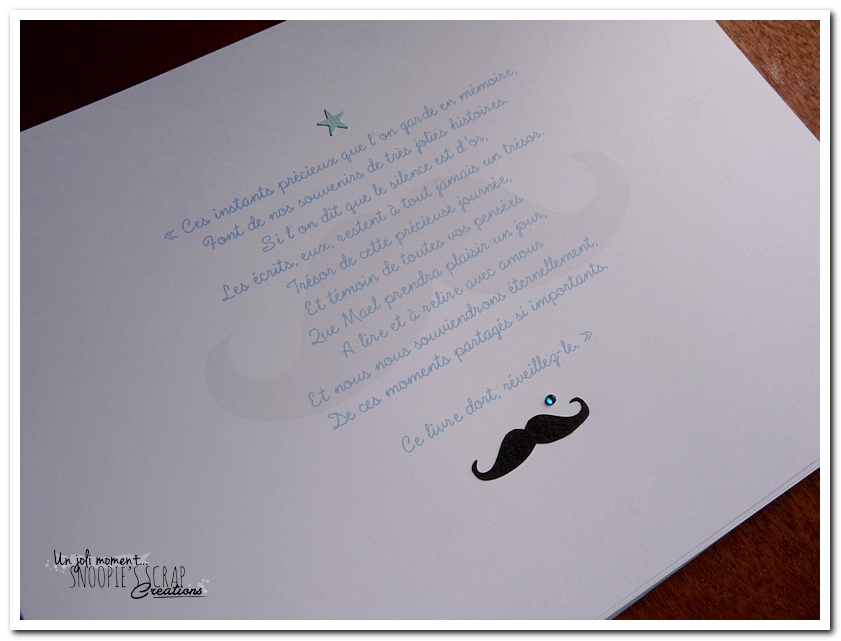 « Ces instants précieux que l'on garde en mémoire,
Font de nos souvenirs de très jolies histoires.
Si l'on dit que le silence est d'or,
Les écrits, eux, restent à tout jamais un trésor.
Trésor de cette précieuse journée,
Et témoin de toutes vos pensées
Que Mael prendra plaisir un jour,
A lire et à relire avec amour
Et nous nous souviendrons éternellement,
De ces moments partagés si importants.
Ce livre dort, réveillez-le. »
Un joli moment...
SNOOPIE'S SCRAP
Créations